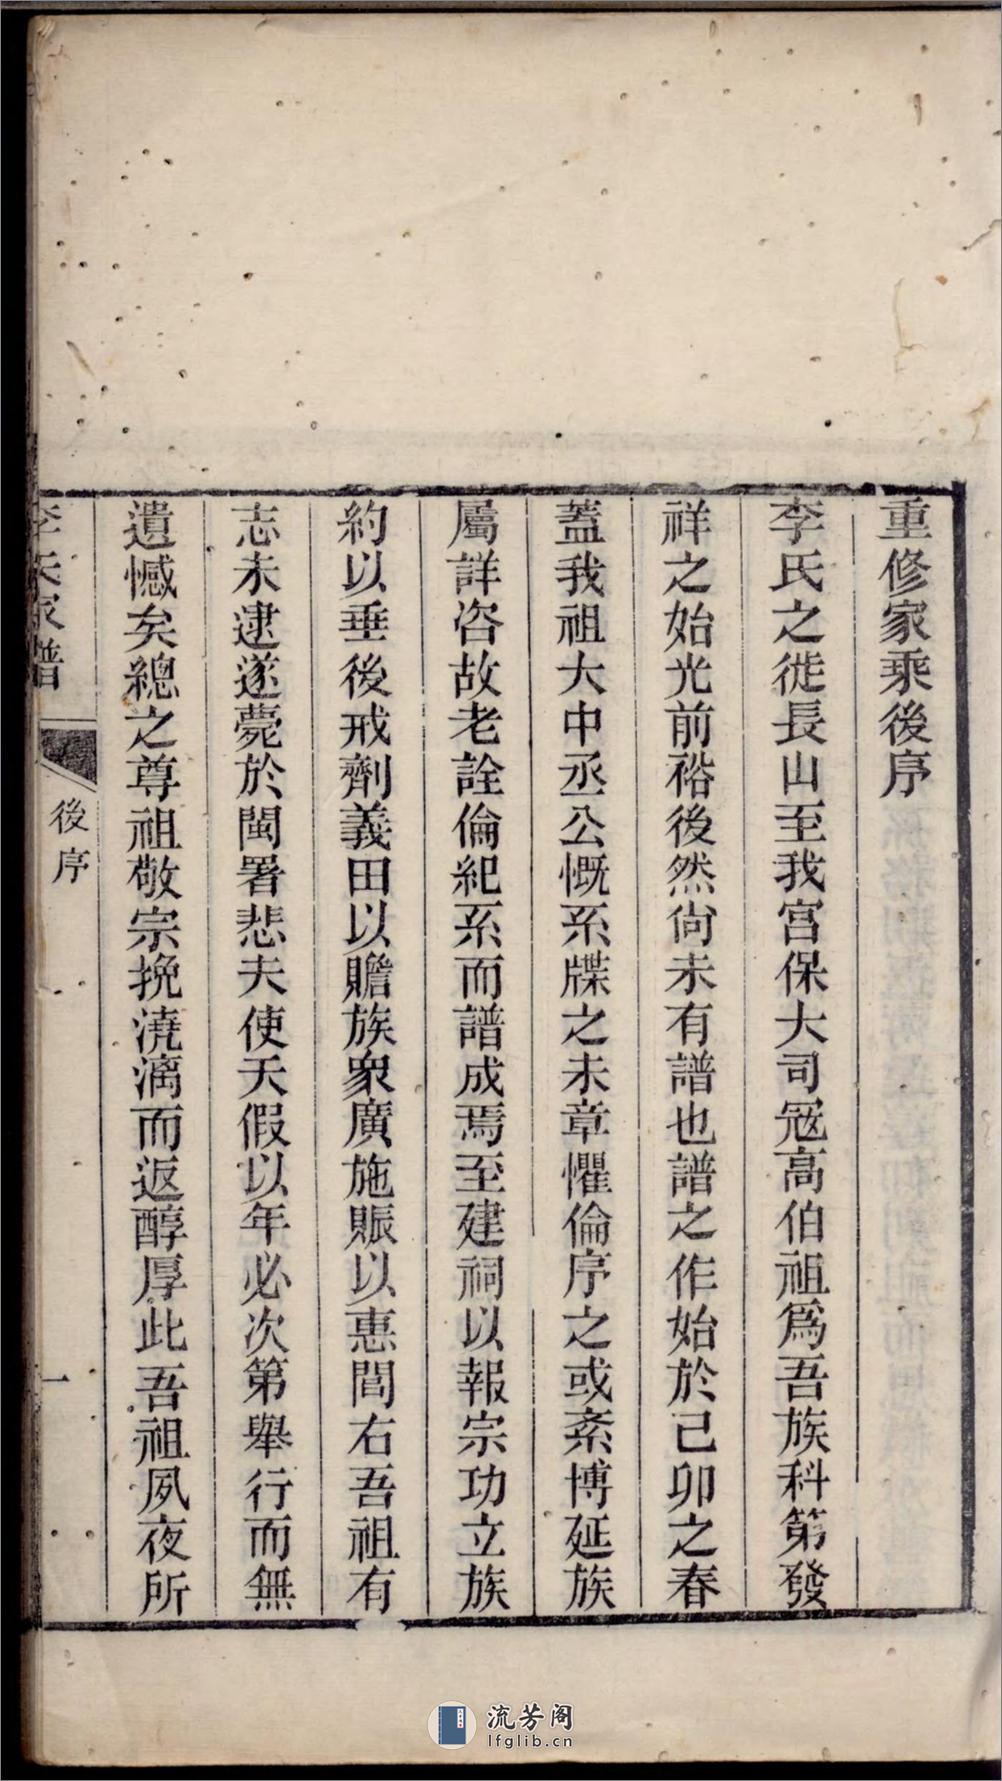 重修家乘後序
李氏之徙長山至我宮保大司冦高伯祖爲吾族科第發
祥之始光前裕後然尚未有譜也譜之作始於己卯之春
蓋我祖大中丞公慨系牒之未章懼倫序之或紊博延族
屬詳咨故老詮倫紀系而譜成焉至建祠以報宗功立族
約以垂後戒劑義田以贍族衆廣施賑以惠閭右吾祖有
志未逮遂薨於閩署悲夫使天假以年必次第舉行而無
遺憾矣總之尊祖敬宗挽澆漓而返醇厚此吾祖夙夜所
李氏家譜 後序 一
流芳阁
lfglib.cn